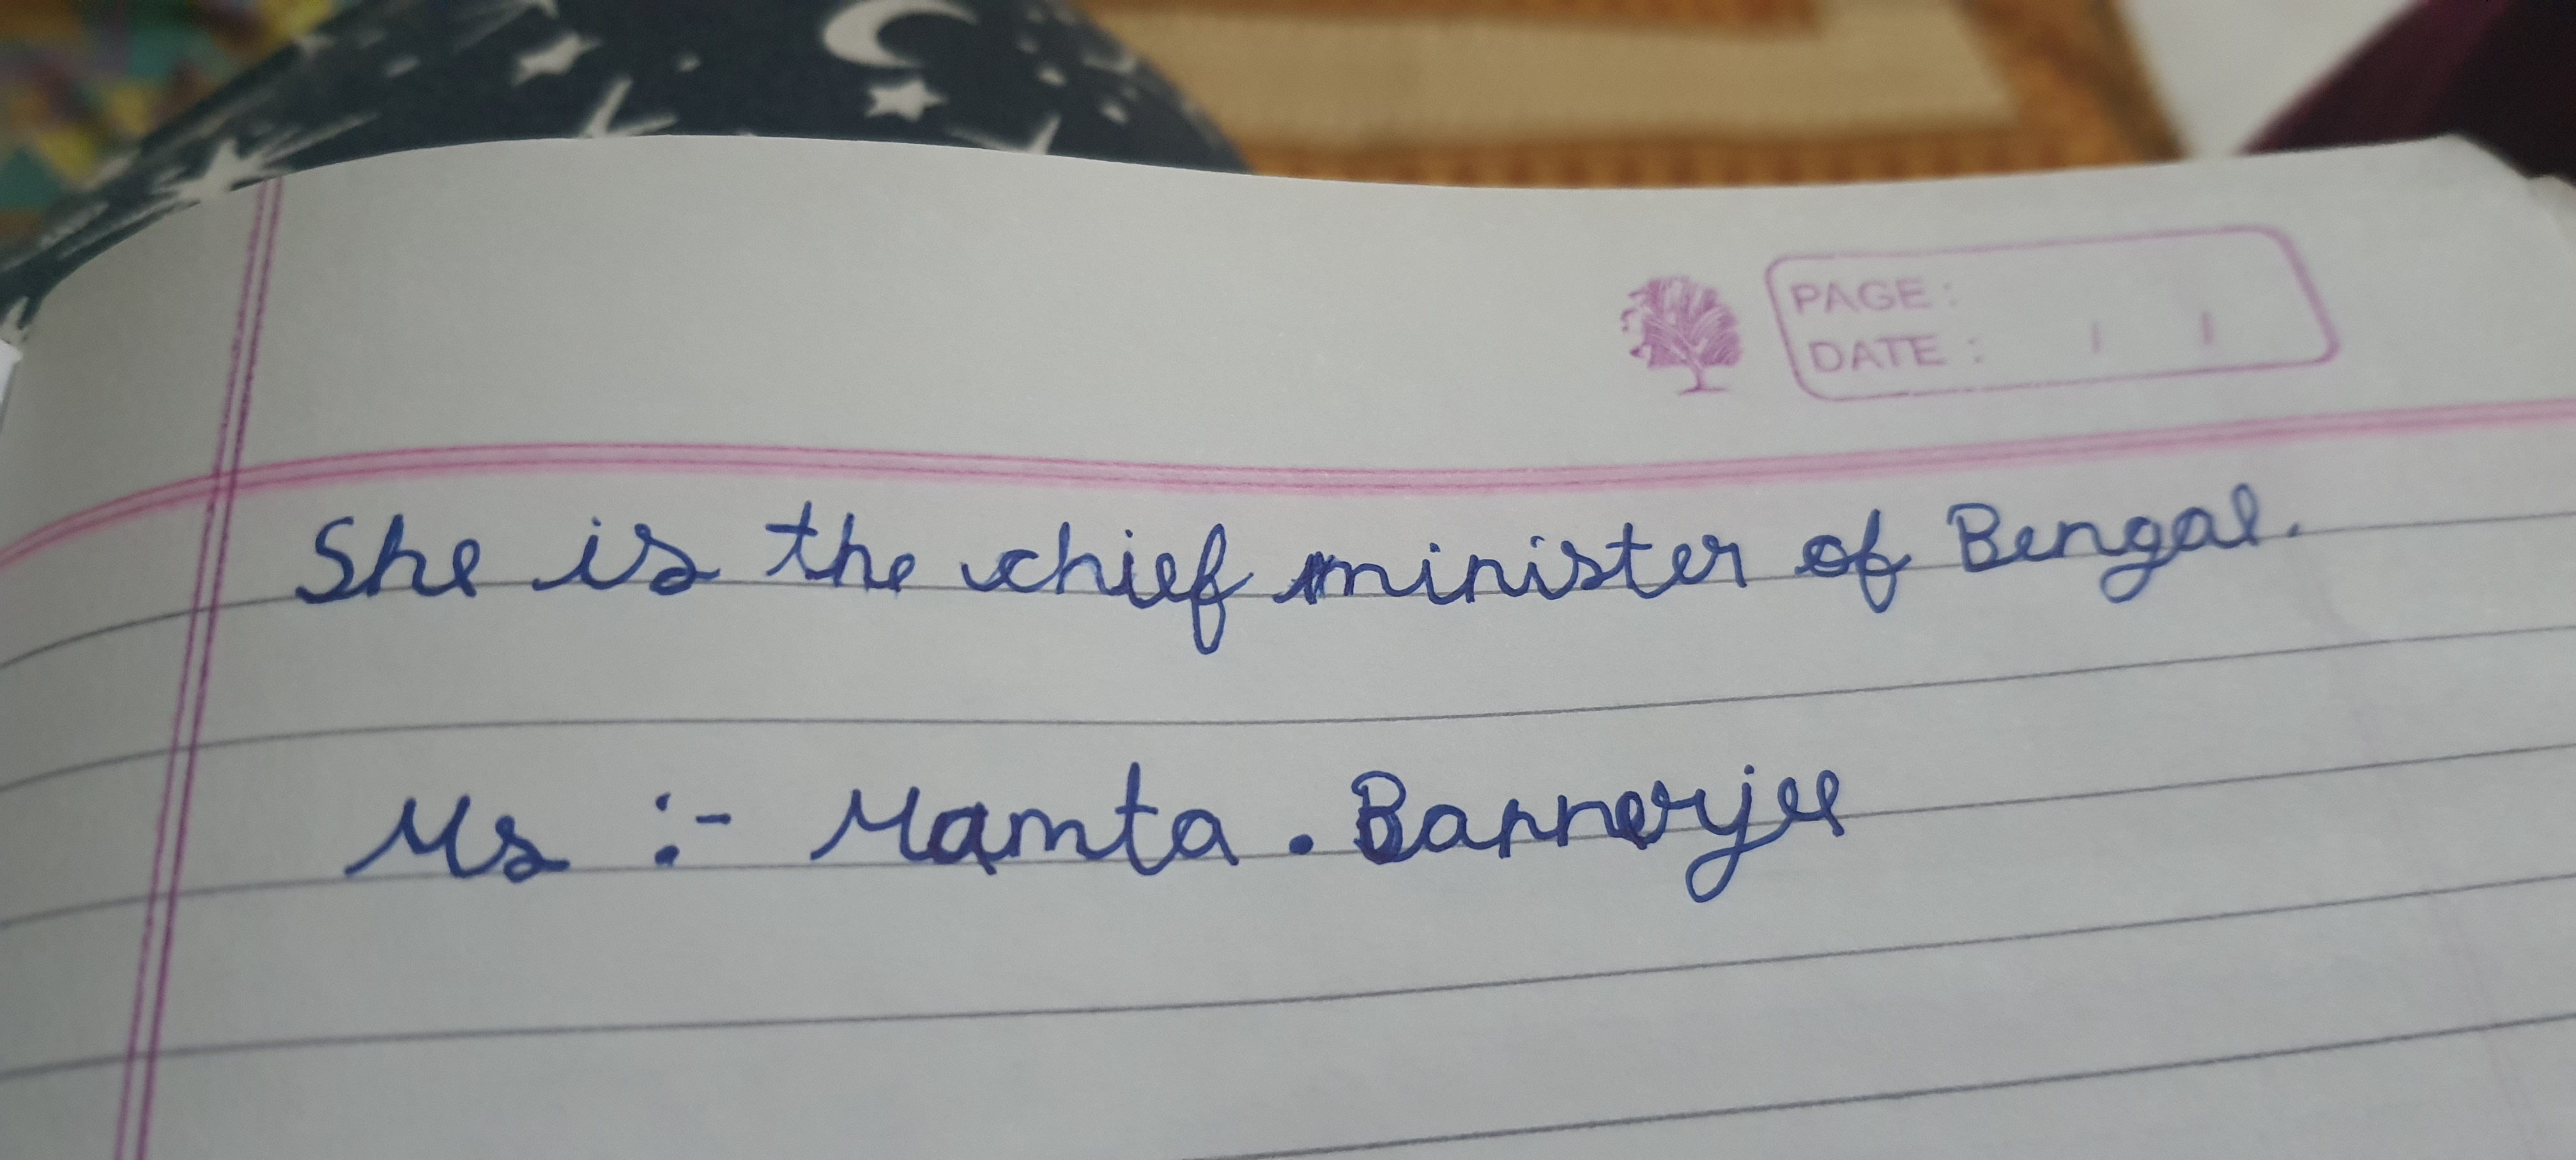 PAGE :
DATE : / /
She is the chief minister of Bengal.
Ms :- Mamta . Bannerjee